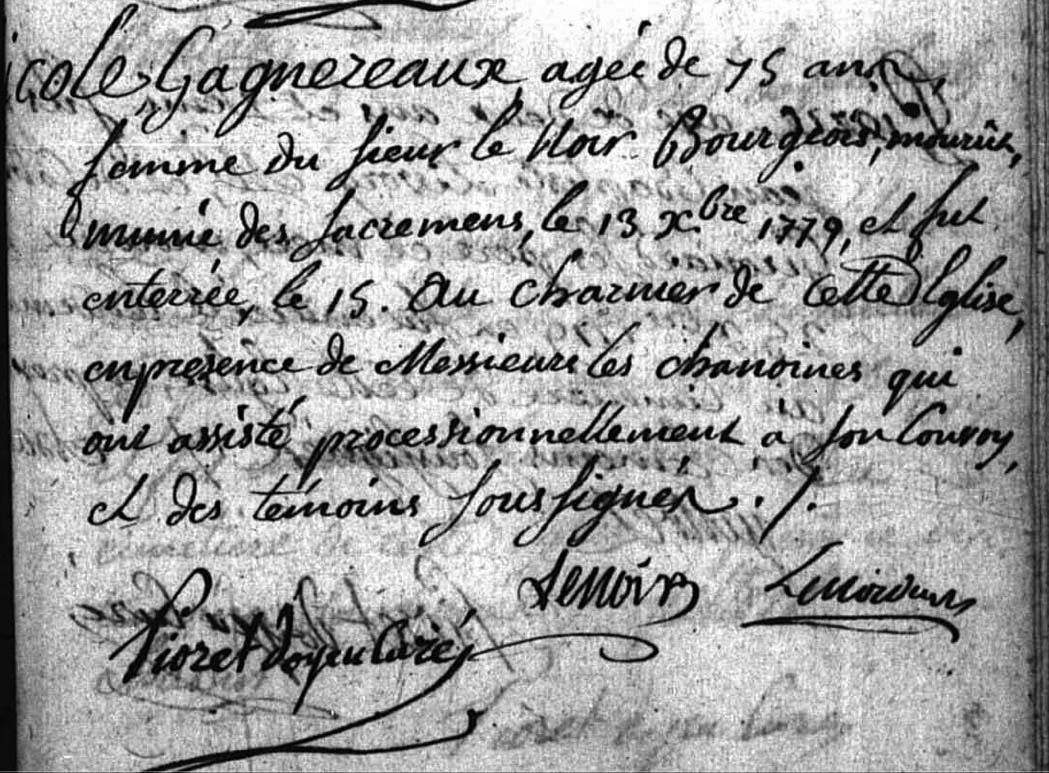 icole Gagnereaux, agée de 75 ans,
femme du sieur le Noir Bourgeois, mourut,
munie des Sacremens, le 13 Xbre 1779, et fut
enterrée, le 15. Au Charnier de cette Eglise,
en presence de Messieurs les chanoines qui
ont assisté processionnellement a son Convoy,
et des temoins soussignés ./.
Lenoir
Pioret doyen Curé